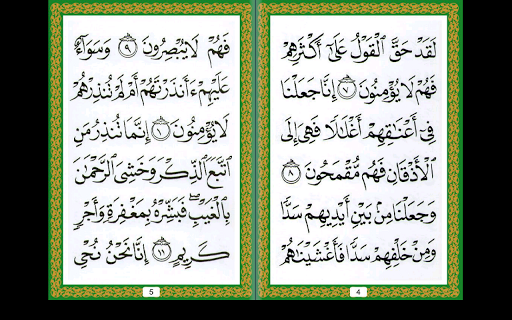 لَقَدْ حَقَّ ٱلْقَوْلُ عَلَىٰٓ أَكْثَرِهِمْ
فَهُمْ لَا يُؤْمِنُونَ ٧ إِنَّا جَعَلْنَا
فِىٓ أَعْنَٰقِهِمْ أَغْلَٰلًا فَهِىَ إِلَى
ٱلْأَذْقَانِ فَهُم مُّقْمَحُونَ ٨
وَجَعَلْنَا مِنۢ بَيْنِ أَيْدِيهِمْ سَدًّا
وَمِنْ خَلْفِهِمْ سَدًّا فَأَغْشَيْنَٰهُمْ
4
فَهُمْ لَا يُبْصِرُونَ ٩ وَسَوَآءٌ
عَلَيْهِمْ ءَأَنذَرْتَهُمْ أَمْ لَمْ تُنذِرْهُمْ
لَا يُؤْمِنُونَ ١٠ إِنَّمَا تُنذِرُ مَنِ
ٱتَّبَعَ ٱلذِّكْرَ وَخَشِىَ ٱلرَّحْمَٰنَ
بِٱلْغَيْبِ ۖ فَبَشِّرْهُ بِمَغْفِرَةٍ وَأَجْرٍ
كَرِيمٍ ١١ إِنَّا نَحْنُ نُحْىِ
5